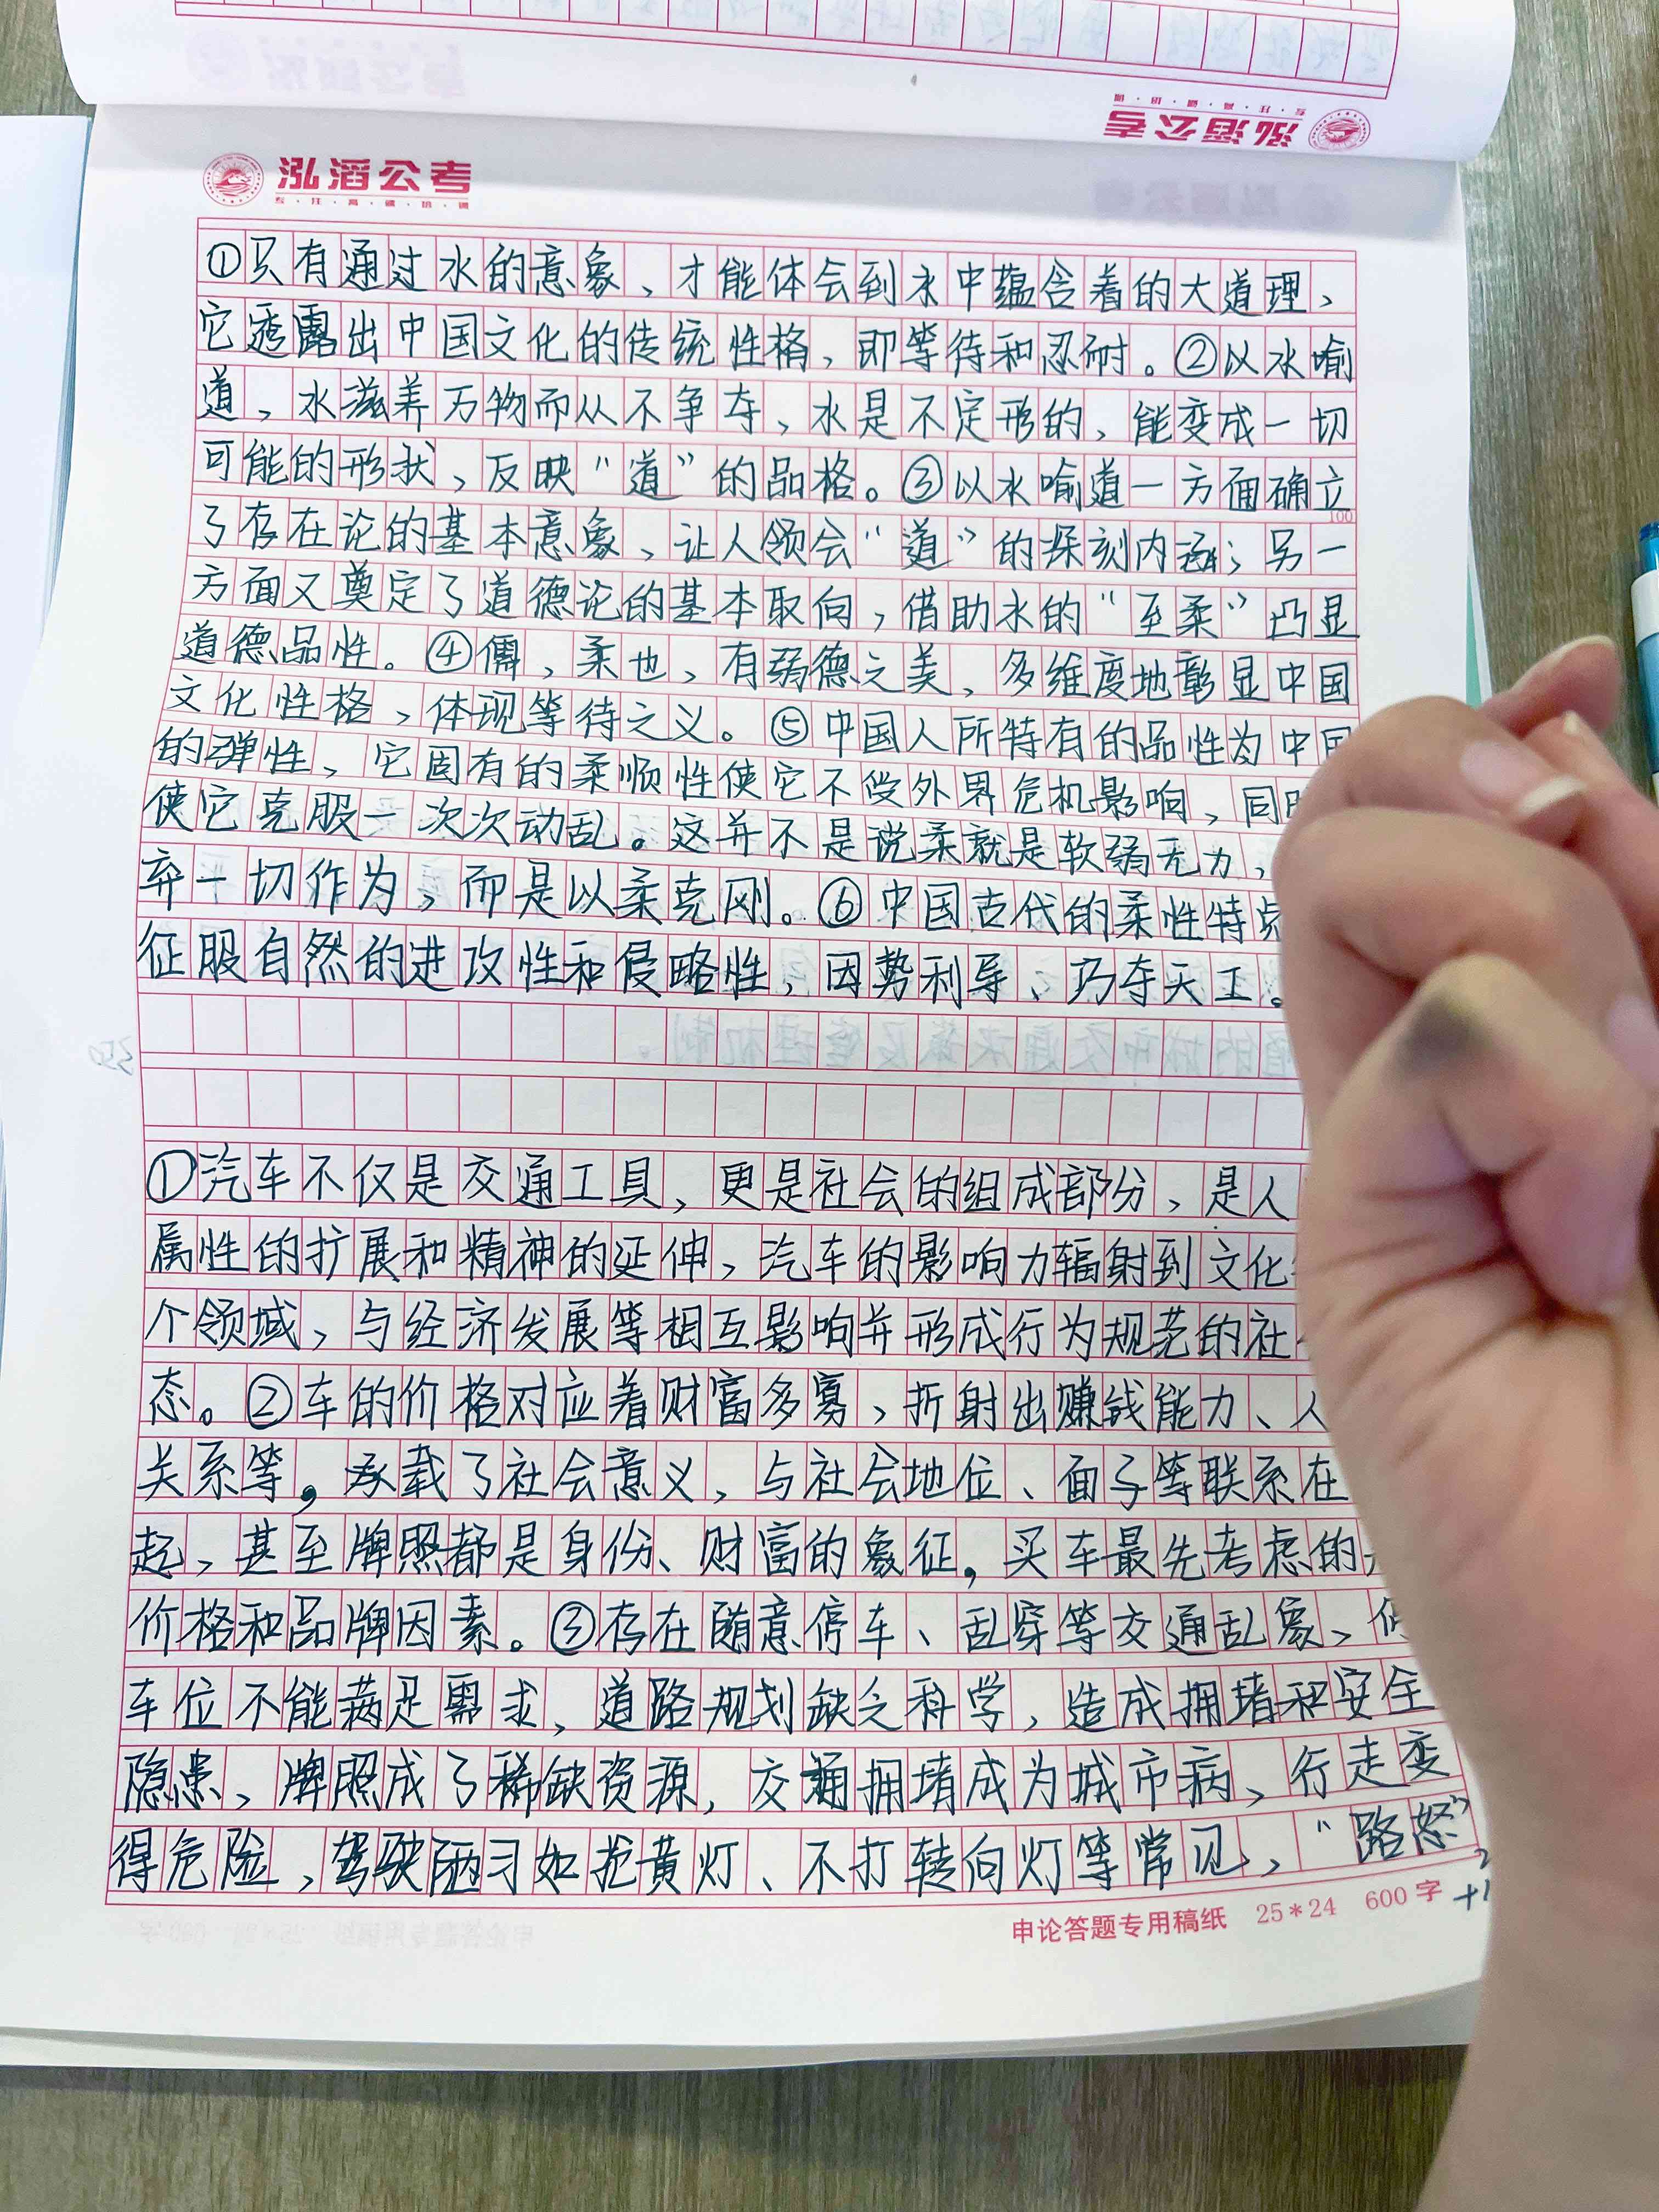 泓滔公考
泓滔公考
专·注·高·诚·培·训
①只有通过水的意象、才能体会到水中蕴含着的大道理、
它透露出中国文化的传统性格，即等待和忍耐。②以水喻
道，水滋养万物而从不争夺、水是不定形的、能变成一切
可能的形状、反映“道”的品格。③以水喻道一方面确立
100
了存在论的基本意象、让人领会“道”的深刻内涵；另一
方面又奠定了道德论的基本取向，借助水的“至柔”凸显
道德品性。④儒，柔也，有弱德之美、多维度地彰显中国
文化性格、体现等待之义。⑤中国人所特有的品性为中国
的弹性、它固有的柔顺性使它不受外界危机影响，同
使它克服一次次动乱。这并不是说柔就是软弱无力，
弃一切作为，而是以柔克刚。⑥中国古代的柔性特点
征服自然的进攻性和侵略性，因势利导、巧夺天工。
①汽车不仅是交通工具，更是社会的组成部分，是人
属性的扩展和精神的延伸，汽车的影响力辐射到文化
个领域、与经济发展等相互影响并形成行为规范的社
态。②车的价格对应着财富多寡、折射出赚钱能力、人
关系等，承载了社会意义，与社会地位、面子等联系在
起、甚至牌照都是身份、财富的象征，买车最先考虑的
价格和品牌因素。③存在随意停车、乱穿等交通乱象、
车位不能满足需求，道路规划缺乏科学，造成拥堵和安全
隐患、牌照成了稀缺资源，交通拥堵成为城市病、行走变
得危险，驾驶陋习如抢黄灯、不打转向灯等常见、“路怒”
申论答题专用稿纸 25*24 600字